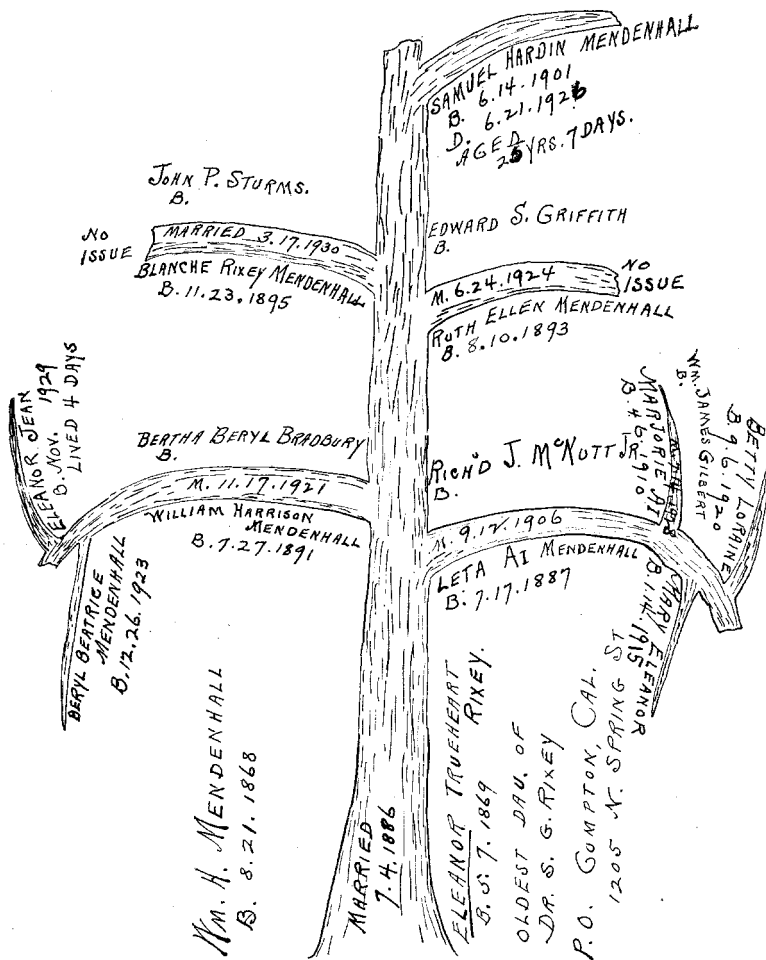 SAMUEL HARDIN MENDENHALL
B. 6.14.1901
D. 6.21.1926
AGED
25 YRS. 7 DAYS.
JOHN P. STURMS.
B.
NO
ISSUE
MARRIED 3.17.1930
BLANCHE RIXEY MENDENHALL
B. 11.23.1895
EDWARD S. GRIFFITH
B.
M. 6.24.1924
NO
ISSUE
RUTH ELLEN MENDENHALL
B. 8.10.1893
ELEANOR JEAN
B. NOV. 1929
LIVED 4 DAYS
BERTHA BERYL BRADBURY
B.
M. 11.17.1921
WILLIAM HARRISON
MENDENHALL
B. 7.27.1891
BERYL BEATRICE
MENDENHALL
B. 12.26.1923
RICH'D J. McNUTT JR.
B.
M. 9.12.1906
LETA AI MENDENHALL
B. 7.17.1887
MARJORIE AI
B. 4.6.1910
WM. JAMES GILBERT
B.
BETTY LORAINE
B. 9.6.1920
MARY ELEANOR
B. 1.14.1915
WM. H. MENDENHALL
B. 8.21.1868
MARRIED
7.4.1886
ELEANOR TRUEHEART
RIXEY.
B. 5.7.1869
OLDEST DAU. OF
DR. S. G. RIXEY
P.O. COMPTON, CAL.
1205 N. SPRING ST